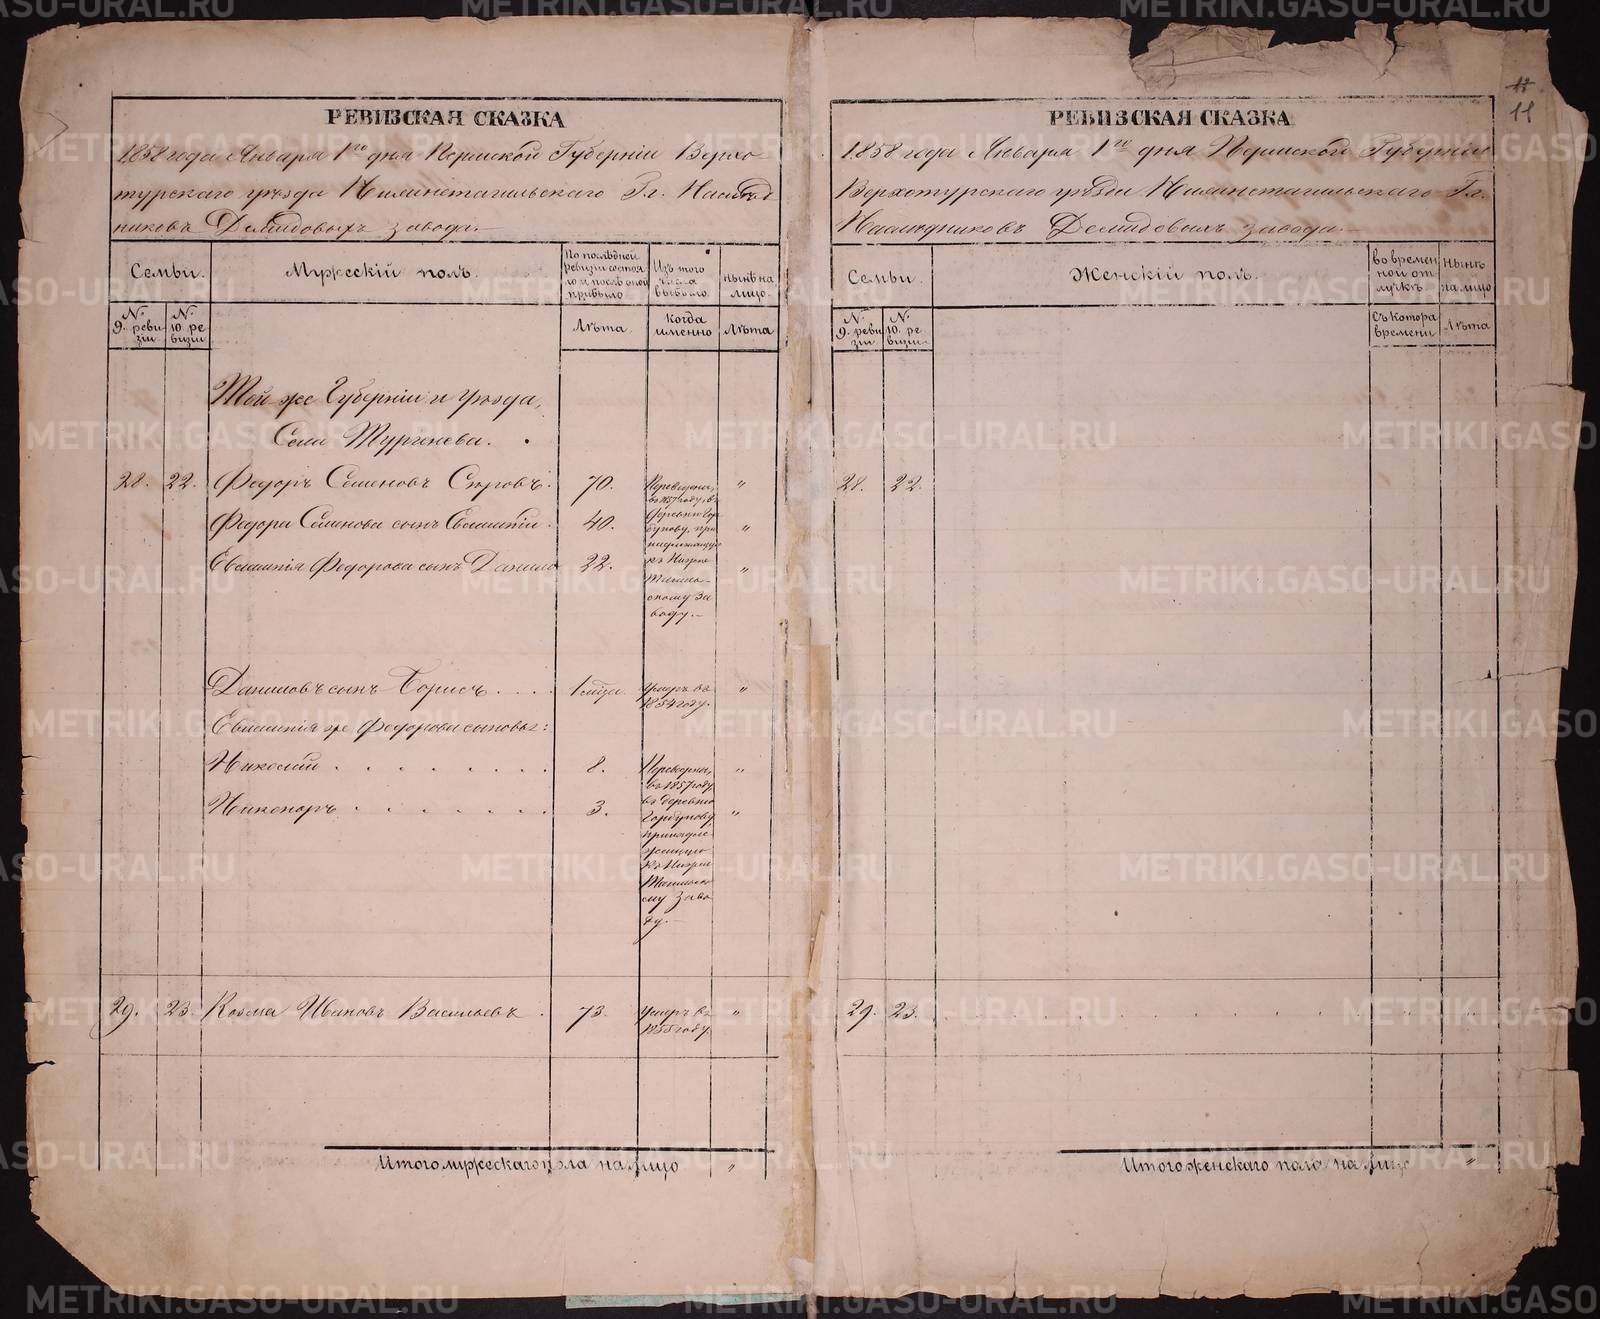 РЕВИЗСКАЯ СКАЗКА
1858 года Января 1го дня Пермской Губерніи Верхо-
турскаго уѣзда Нижнетагильскаго Гг. Наслѣд
никовъ Демидовыхъ завода.
Семьи.
Мужескій полъ.
По послѣдней
ревизіи состоя
ло и послѣ оной
прибыло
Изъ того
числа
выбыло.
нынѣ на
лицо.
№
9. реви
зіи
№
10. ре
визіи
Лѣта.
когда
именно
Лѣта
Той же Губерніи и уѣзда,
Села Тургенева.
28. 22. Федоръ Семеновъ 70. "
Федора Семенова сынъ 40. "
Федорова сынъ Данило 22. "
Переведены
въ 1857 году, въ
деревню Гор
бунову, при
надлежащую
къ Нижне
Тагиль-
скому За
воду.
Даниловъ сынъ Борисъ 1 "
Умеръ въ
1854 году.
же Федорова сыновья:
Николай 8. "
Никоноръ 3. "
Переведены
въ 1857 году
въ деревню
Горбунову
принадле
жащую
къ Нижне
Тагильско
му Заво
ду.
29. 23. Козма Ивановъ Васильевъ 73. "
Умеръ въ
1855 году.
Итого мужескаго пола на лицо "
11
РЕВИЗСКАЯ СКАЗКА
1858 года Января 1го дня Пермской Губерніи
Верхотурскаго уѣзда Нижнетагильскаго Гг.
Наслѣдниковъ Демидовыхъ завода.
Семьи.
Женскій полъ.
во времен
ной от
лучкѣ
нынѣ
на лицо
№
9. реви
зіи
№
10. ре
визіи
Съ котора
времени
Лѣта
28. 22.
29. 23. " "
Итого женскаго пола на лицо "
METRIKI.GASO-URAL.RU